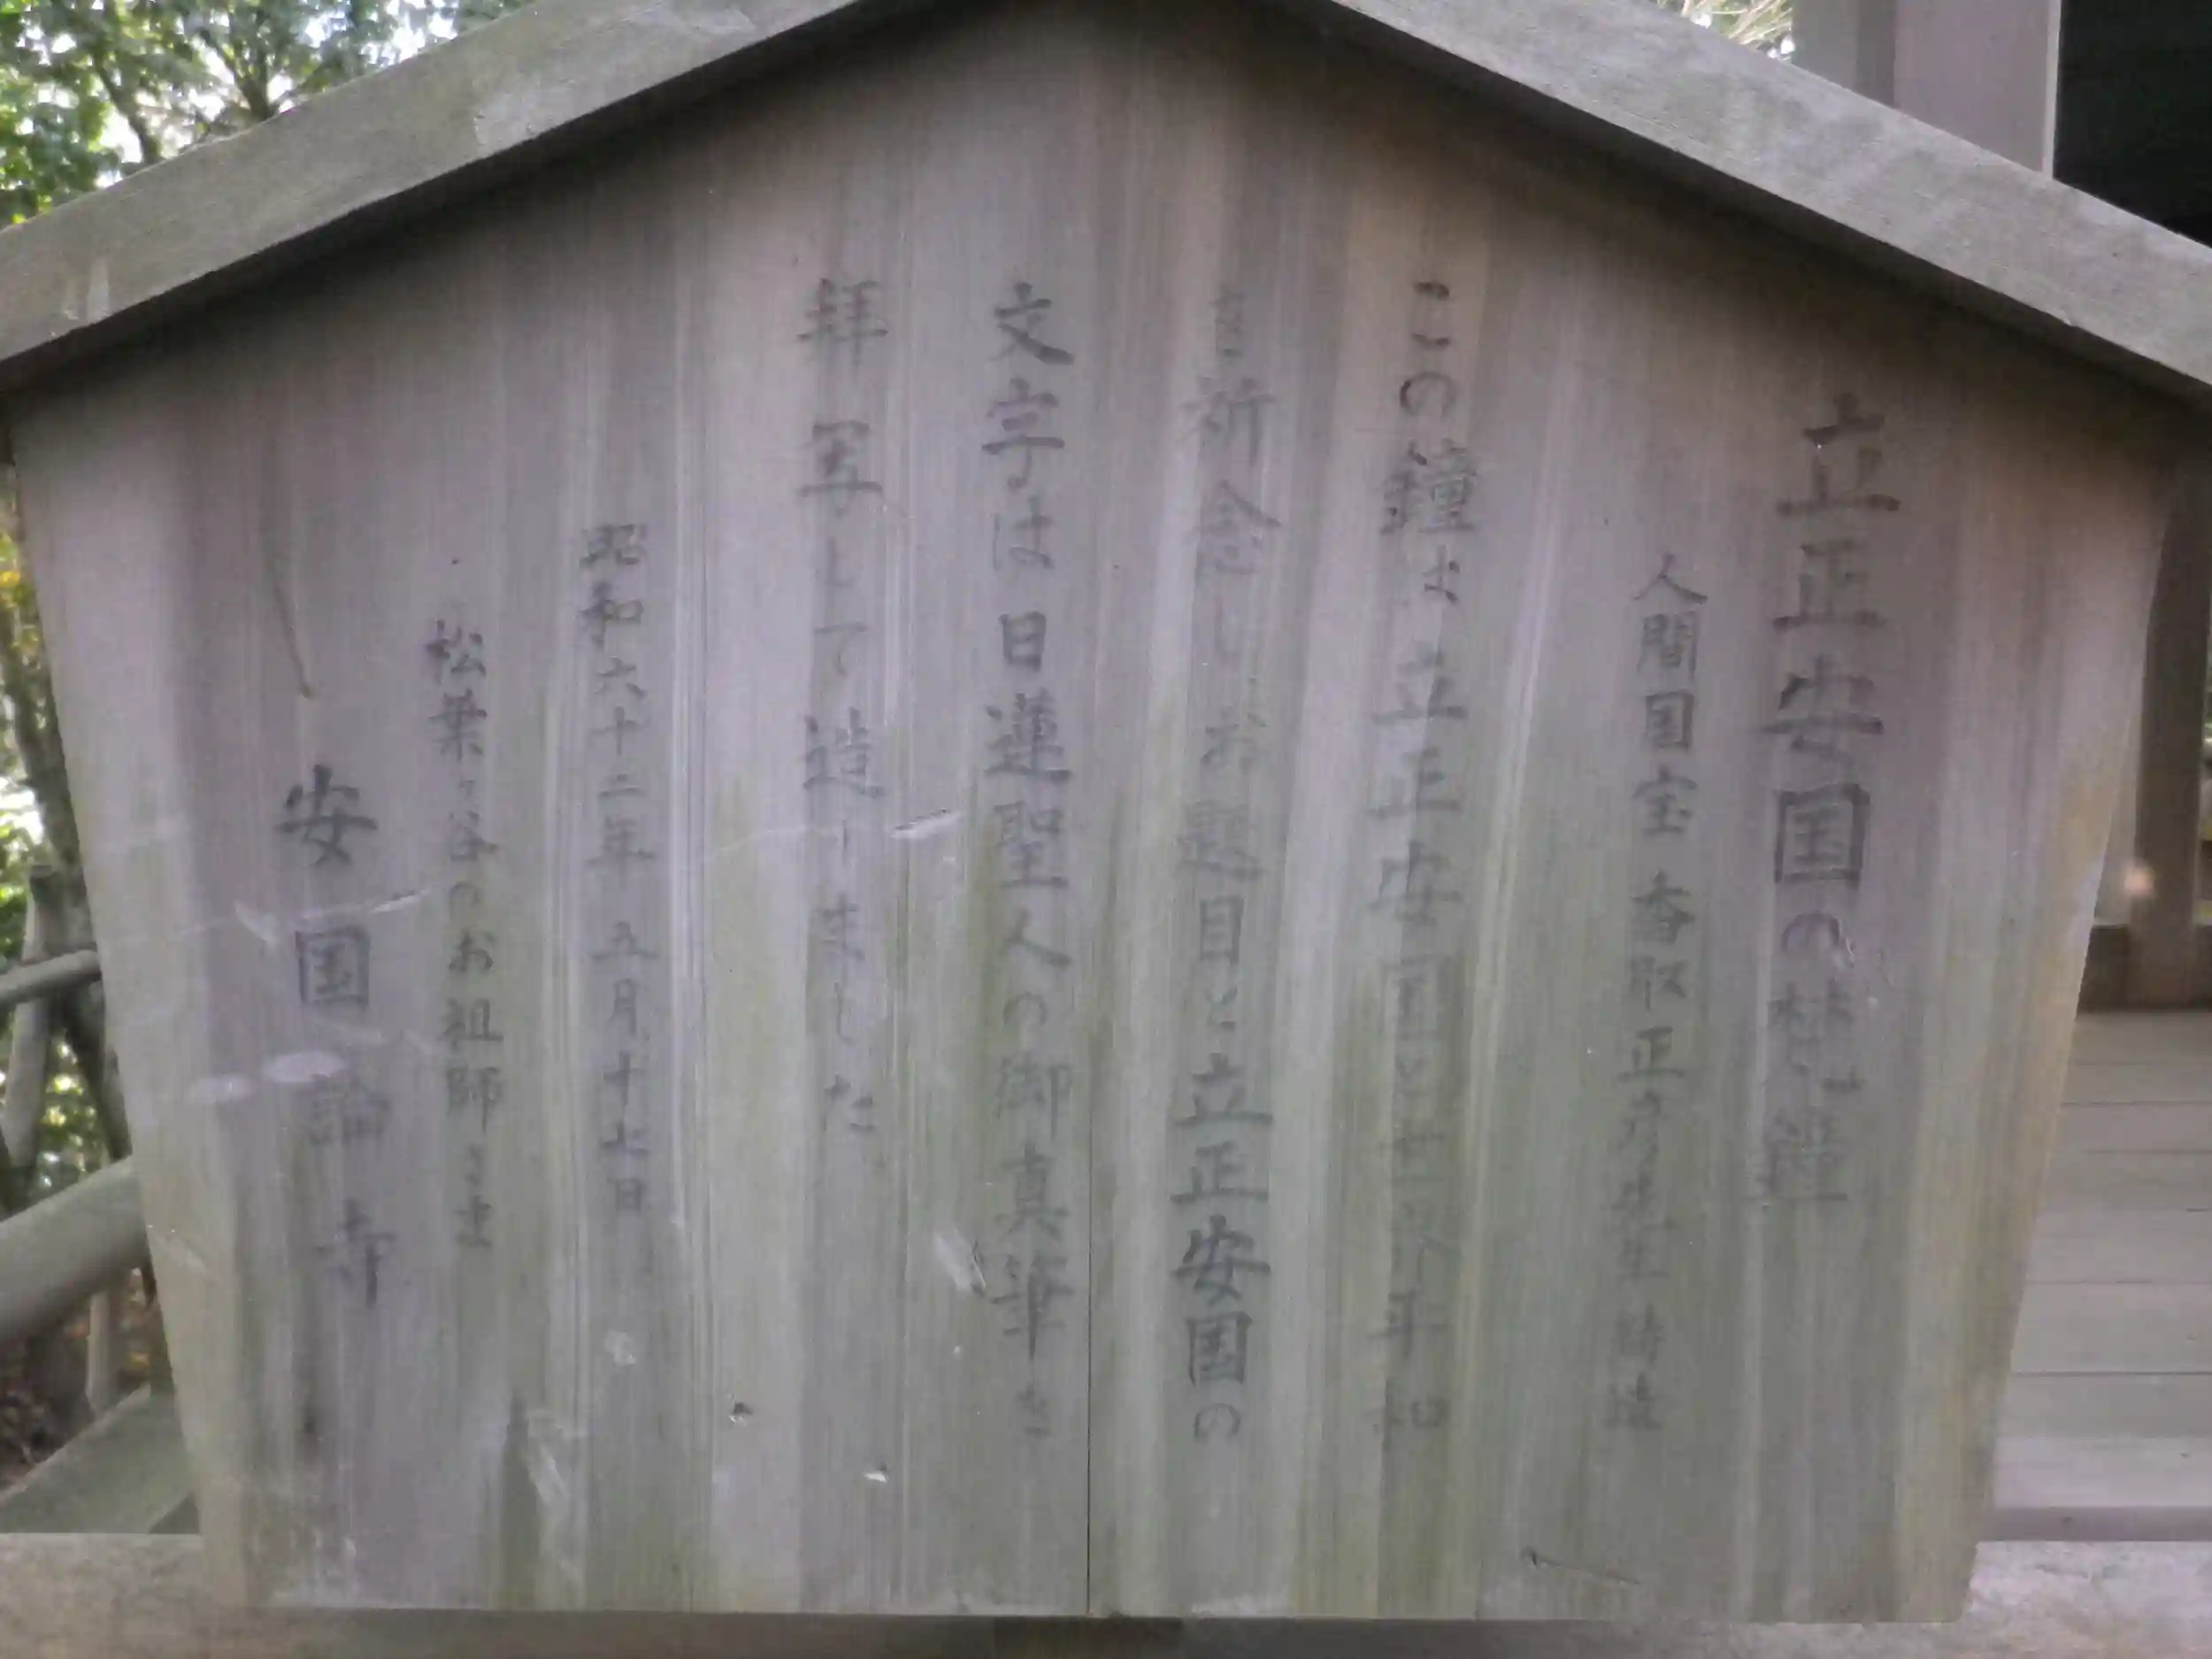 立正安国の梵鐘
人間国宝 香取正彦先生鋳造
この鐘は立正安国と世界平和
を祈念しお題目と立正安国の
文字は日蓮聖人の御真筆を
拝写して造りました
昭和六十二年五月十七日
松葉ヶ谷のお祖師さま
安国論寺